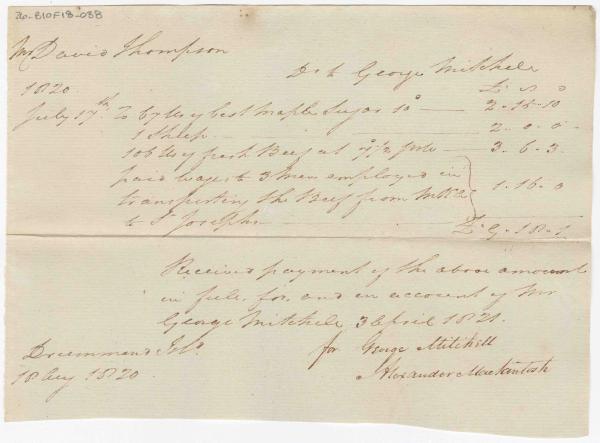 20-810F18-038
Mr David Thompson
Dr to George Mitchell
1820
£ s D
July 17th To 67 lbs of best Maple Sugar 10D — 2-15-10
1 Sheep — 2-0-0
106 lbs of fresh Beef at 7½ p lb — 3-6-3
paid wages to 3 Men employed in
transporting the Beef from
to St Josephs — 1-16-0
£ 9-18-1
Received payment of the above amount
in full for and on account of Mr
George Mitchell, 3 April 1821.
for George Mitchell
Alexander MacKintosh
Drummond Isld
18 Augt 1820